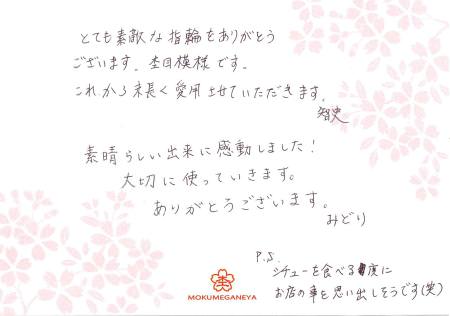 とても素敵な指輪をありがとう
ございます。杢目模様です。
これから末長く愛用させていただきます。
智史
素晴らしい出来に感動しました!
大切に使っていきます。
ありがとうございます。
みどり
P.S.
シチューを食べる度に
お店の事を思い出しそうです(笑)
MOKUMEGANEYA